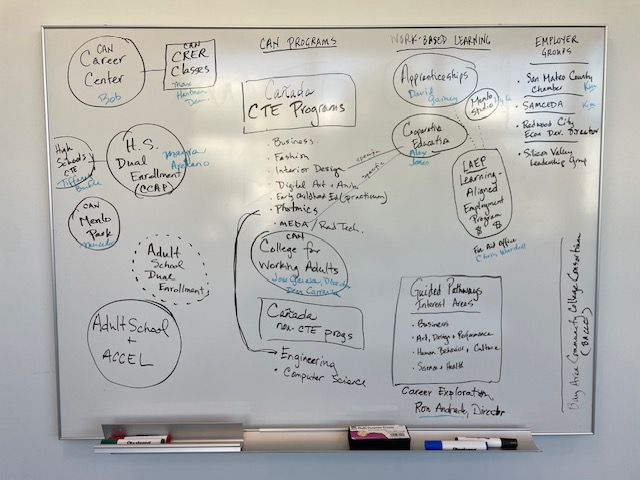 CAN
Career
Center
Bob
CAN
CRER
Classes
High
School's
CTE
H.S.
Dual
Enrollment
(CCAP)
CAN
Menlo
Park
Adult
School
Dual
Enrollment
Adult School
+
ACCEL
CAN PROGRAMS
Cañada
CTE Programs
• Business
• Fashion
• Interior Design
• Digital Art + Anim
• Early childhood Ed (practicum)
• Photonics
• MEDA / Rad Tech.
CAN
College for
Working Adults
Cañada
non-CTE progs
Engineering
• Computer Science
WORK-BASED LEARNING
Apprenticeships
David
Menlo
Studio
Cooperative
Education
Alex
Jones
specific
specific
LAEP
Learning-
Aligned
Employment
Program
$ $
Fin Aid Office
Chris
Guided Pathways
Interest Areas
• Business
• Art, Design + Performance
• Human Behavior + Culture
• Science + Health
Career Exploration
Ron Andrade, Director
EMPLOYER
GROUPS
• San Mateo County
Chamber
• SAMCEDA
• Redwood City
Econ Dev. Director
• Silicon Valley
Leadership Group
Bay Area Community College Consortium
(BACCC)